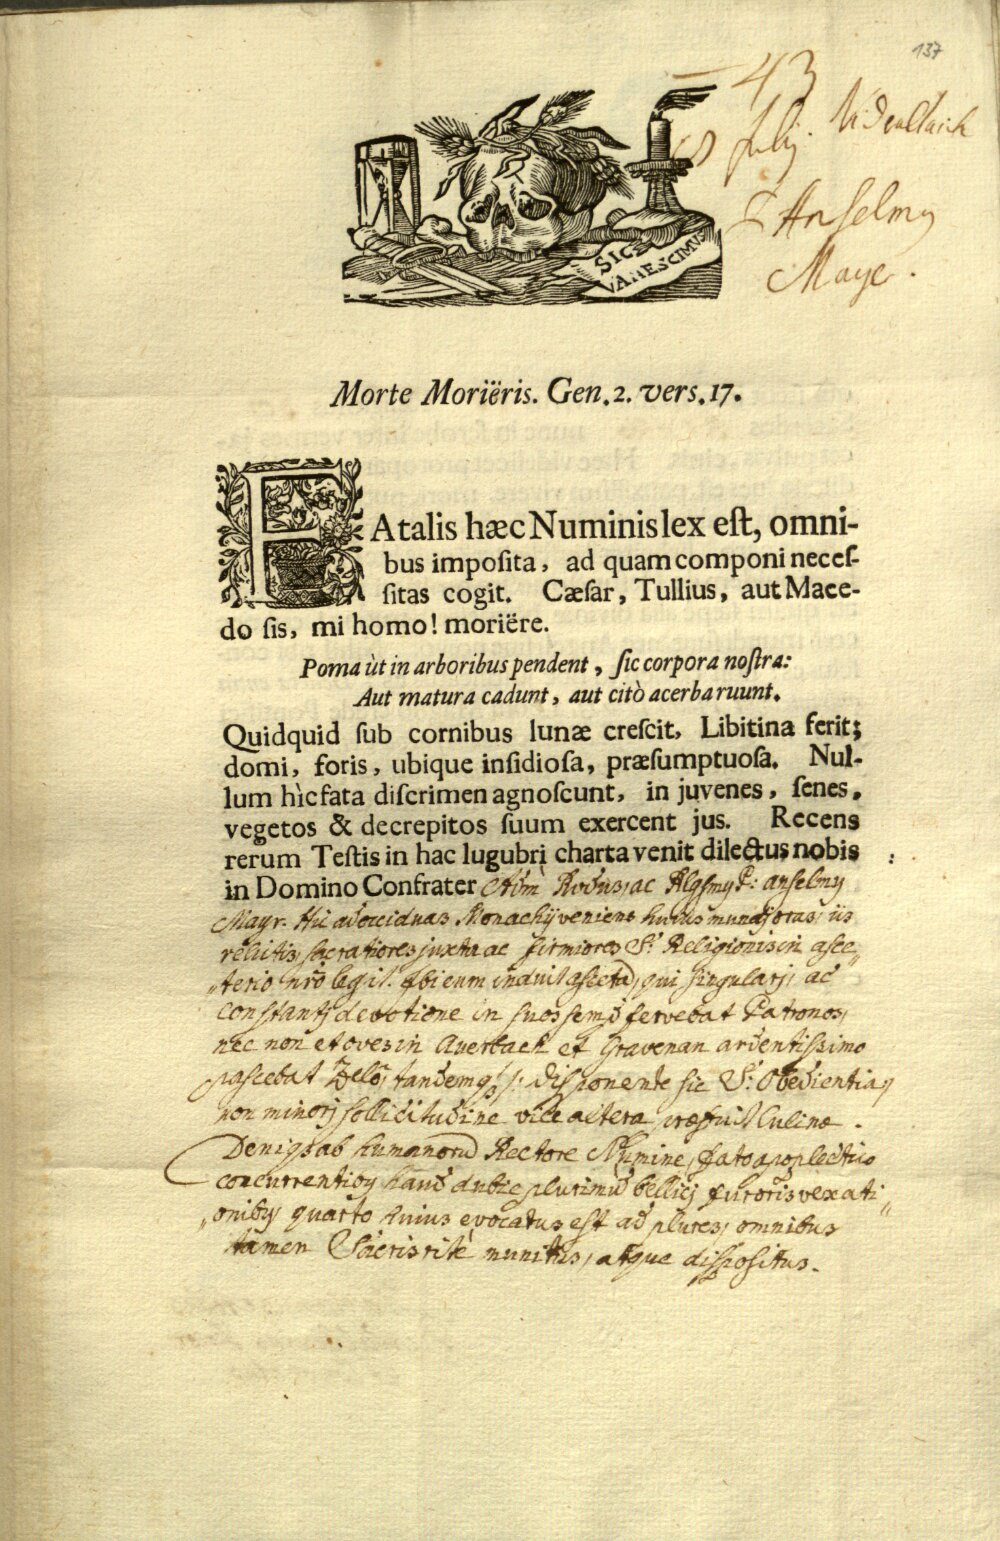 137
43
18 July. Nideraltaich
P Anselmy
Mayr.
SIC
VANESCIMUS
Morte Moriëris. Gen. 2. vers. 17.
FAtalis hæc Numinis lex eſt, omni-
bus impoſita, ad quam componi neceſ-
ſitas cogit. Cæſar, Tullius, aut Mace-
do ſis, mi homo! moriëre.
Poma ùt in arboribus pendent, ſic corpora noſtra:
Aut matura cadunt, aut citò acerba ruunt.
Quidquid ſub cornibus lunæ creſcit, Libitina ferit;
domi, foris, ubique inſidioſa, præſumptuoſa. Nul-
lum hìc fata diſcrimen agnoſcunt, in juvenes, ſenes,
vegetos & decrepitos ſuum exercent jus. Recens
rerum Teſtis in hac lugubrì charta venit dilectus nobis
in Domino Confrater Adm̄ Rdus, ac Rlgsmy P: Anselmy
Mayr. Hic ad occiduas Monachij veniens hujus mundj oras, iis
relictis, sacratiores juxta ac firmiores S: Religionis in asce-
terio nrō legit. Ibi eum induit ascetā, qui singularj, ac
constantj devotione in suos semp̄ fervebat Patronos,
nec non et oves in Averbach et Gravenau ardentissimo
pascebat Zelo, tandemq3 /: disponente sic S: Obedientia :/
non minorj sollicitudine vice altera præfuit Culinæ.
Deniq3 ab humanorū Rectore Numine, fato apoplectico
concurrentiby haud dubiè plurimū bellicj furoris vexati-
oniby quarto huius evocatus est ad plures, omnibus
tamen Sacris ritè munitus, atque dispositus.